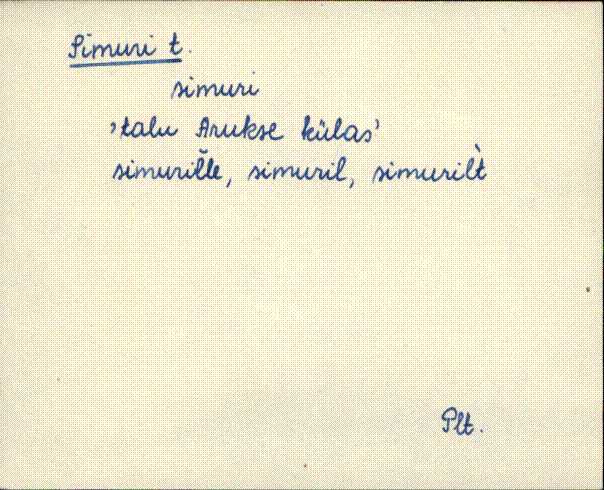 Simuri t.
simuri
'talu Arukse külas'
simurille, simuril, simurilt
Plt.